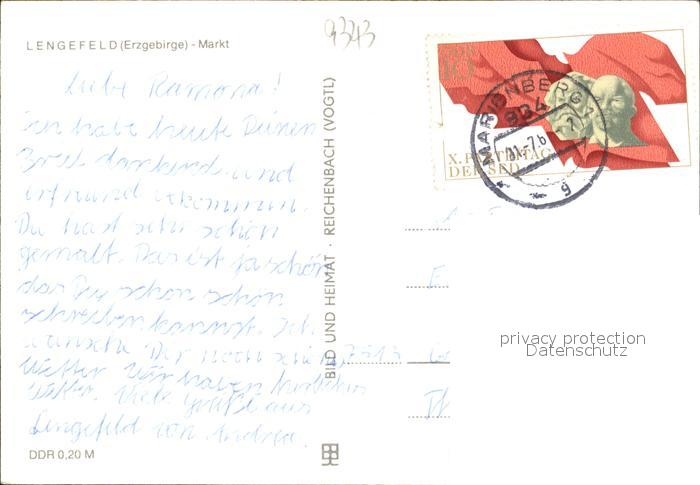 9343
LENGEFELD (Erzgebirge) - Markt
Liebe Ramona!
Ich habe heute Deinen
Brief dankend und
erfreund bekommen.
Du hast sehr schön
gemalt. Das ist ja schön
das Du schon schön
schreiben kannst. Ich
wünsche Dir noch schönes
Wetter Wir haben
Wetter. Viele Grüße aus
Lengefeld von Andrea.
DDR 0,20 M
BILD UND HEIMAT · REICHENBACH (VOGTL)
DDR
10
X. PARTEITAG
DER SED
MARIENBERG 1
934
g
privacy protection
Datenschutz